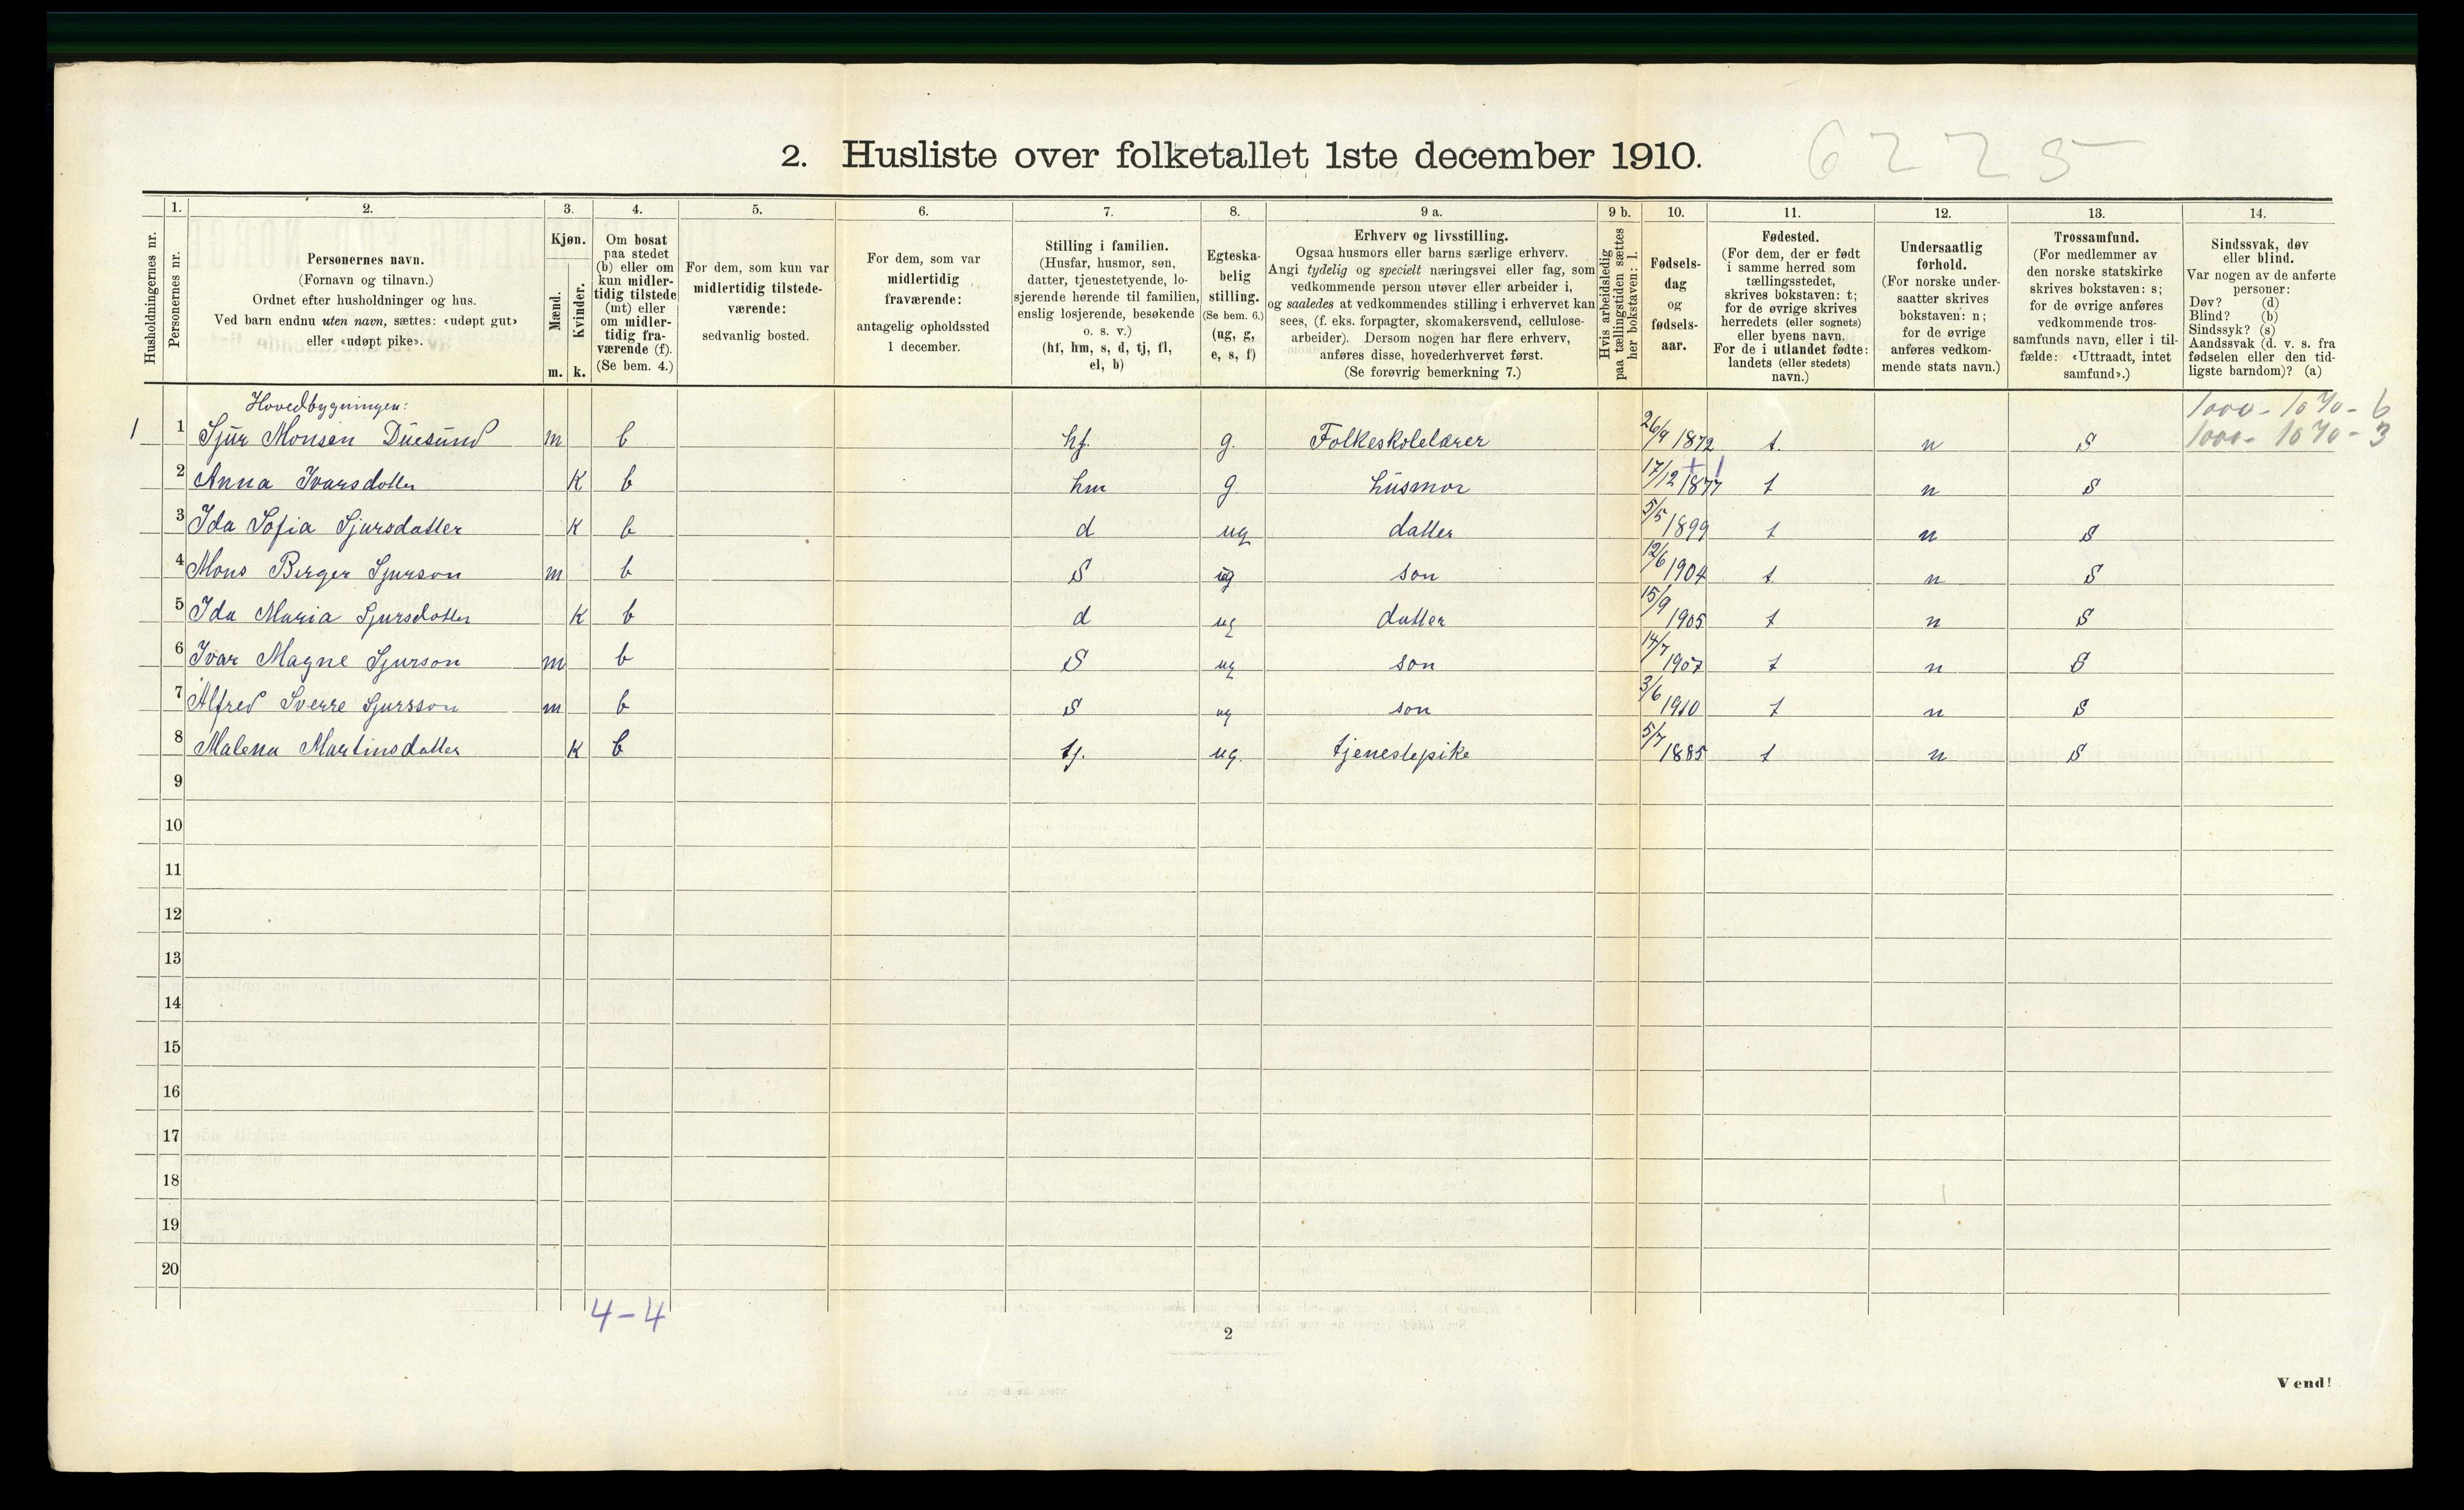 6225
2. Husliste over folketallet 1ste december 1910.
1. 2. 3. 4. 5. 6. 7. 8. 9 a. 9 b. 10. 11. 12. 13. 14.
Husholdningernes nr.
Personernes nr.
Personernes navn.
(Fornavn og tilnavn.)
Ordnet efter husholdninger og hus.
Ved barn endnu uten navn, sættes: «udøpt gut»
eller «udøpt pike».
Kjøn.
Mænd.
Kvinder.
m. k.
Om bosat
paa stedet
(b) eller om
kun midler-
tidig tilstede
(mt) eller
om midler-
tidig fra-
værende (f).
(Se bem. 4.)
For dem, som kun var
midlertidig tilstede-
værende:
sedvanlig bosted.
For dem, som var
midlertidig
fraværende:
antagelig opholdssted
1 december.
Stilling i familien.
(Husfar, husmor, søn,
datter, tjenestetyende, lo-
sjerende hørende til familien,
enslig losjerende, besøkende
o. s. v.)
(hf, hm, s, d, tj, fl,
el, b)
Egteska-
belig
stilling.
(Se bem. 6.)
(ug, g,
e, s, f)
Erhverv og livsstilling.
Ogsaa husmors eller barns særlige erhverv.
Angi tydelig og specielt næringsvei eller fag, som
vedkommende person utøver eller arbeider i,
og saaledes at vedkommendes stilling i erhvervet kan
sees, (f. eks. forpagter, skomakersvend, cellulose-
arbeider). Dersom nogen har flere erhverv,
anføres disse, hovederhvervet først.
(Se forøvrig bemerkning 7.)
Hvis arbeidsledig
paa tællingstiden sættes
her bokstaven: l.
Fødsels-
dag
og
fødsels-
aar.
Fødested.
(For dem, der er født
i samme herred som
tællingsstedet,
skrives bokstaven: t;
for de øvrige skrives
herredets (eller sognets)
eller byens navn.
For de i utlandet fødte:
landets (eller stedets)
navn.)
Undersaatlig
forhold.
(For norske under-
saatter skrives
bokstaven: n;
for de øvrige
anføres vedkom-
mende stats navn.)
Trossamfund.
(For medlemmer av
den norske statskirke
skrives bokstaven: s;
for de øvrige anføres
vedkommende tros-
samfunds navn, eller i til-
fælde: «Uttraadt, intet
samfund».)
Sindssvak, døv
eller blind.
Var nogen av de anførte
personer:
Døv? (d)
Blind? (b)
Sindssyk? (s)
Aandssvak (d. v. s. fra
fødselen eller den tid-
ligste barndom)? (a)
Hovedbygningen:
1000 - 1070 - 6
1000 - 1070 - 3
1 1 Sjur Monsen Duesund m b hf. g. Folkeskolelærer 26/9 1872 t. n S
2 Anna Ivarsdotter K b hm g. husmor 17/12 1877 t n S
3 Ida Sofia Sjursdatter K b d ug datter 5/5 1899 t n S
4 Mons Birger Sjurson m b S ug son 12/6 1904 t n S
5 Ida Maria Sjursdotter K b d ug datter 15/9 1905 t n S
6 Ivar Magne Sjurson m b S ug son 14/7 1907 t n S
7 Alfred Sverre Sjursson m b S ug son 3/6 1910 t n S
8 Malena Martinsdatter K b tj. ug. tjenestepike 5/7 1885 t n S
9
10
11
12
13
14
15
16
17
18
19
20
4-4
2
Vend!